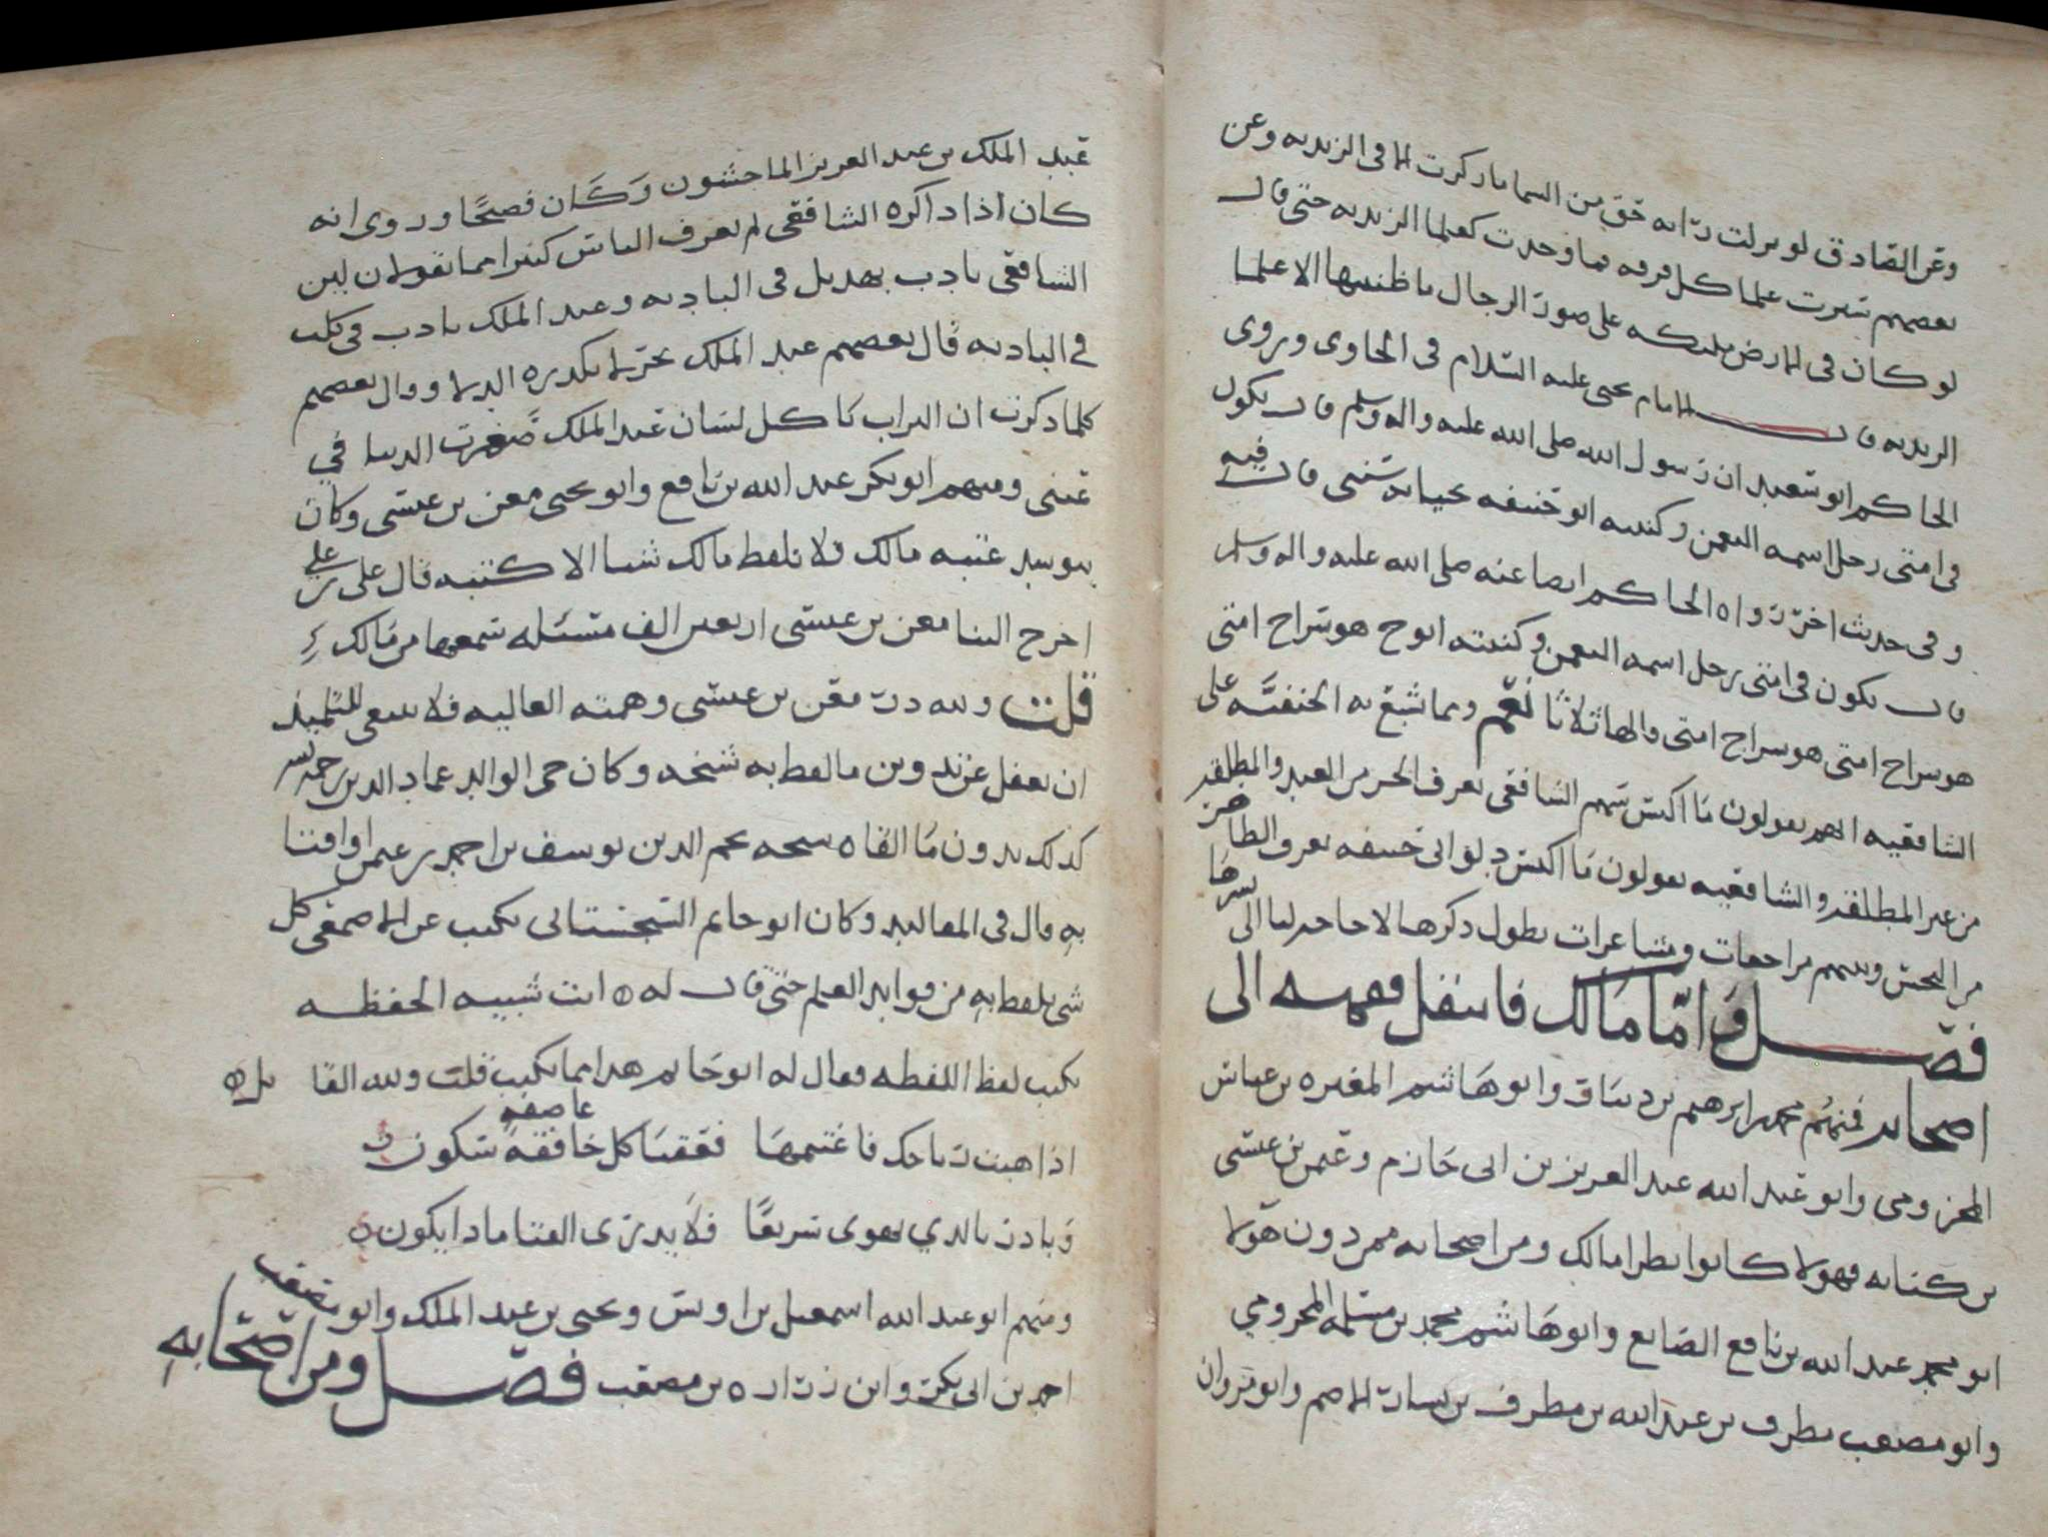 وعن الصادق لو نزلت راية حق من السما ما ركزت الا في الزيديه وعن
بعضهم سبرت علما كل فرقه فما وجدت كعلما الزيديه حتى قال
لو كان في الارض ملئكه على صور الرجال ما ظننتها الا علما
الزيديه قال الامام يحيى عليه السلام في الحاوي وروى
الحاكم ابو سعيد ان رسول الله صلى الله عليه واله وسلم قال يكون
في امتي رجل اسمه النعمن وكنيته ابو حنيفه يحيا به سنتي قال فيه
وفي حديث اخر رواه الحاكم ايضا عنه صلى الله عليه واله وسلم
قال يكون في امتي رجل اسمه النعمن وكنيته ابو ح هو سراج امتي
هو سراج امتي هو سراج امتي قالها ثلاثا نعم ومما شنع به الحنفيه على
الشافعيه انهم يقولون ما اكيس سهم الشافعي يعرف الحر من العبد والمطلقه
من غير المطلقه والشافعيه يقولون ما اكيس دلو ابي حنيفه يعرف الطاهر
من النجس وبينهم مراجعات ومشاعرات يطول ذكرها لا حاجه لنا الى شرحها
فصل واما مالك فانتقل فقهه الى
اصحابه فمنهم محمد بن ابرهيم بن دينار وابو هاشم المغيره بن عياش
المخزومي وابو عبد الله عبد العزيز بن ابي حازم وعثمن بن عيسى
بن كنانه فهولا كانوا نظرا مالك ومن اصحابه ممن دون هولا
ابو محمد عبد الله بن نافع الصايغ وابو هاشم محمد بن مسلمه المخزومي
وابو مصعب مطرف بن عبد الله بن مطرف بن يسار الاصم وابو مروان
عبد الملك بن عبد العزيز الماجشون وكان فصيحا وروي انه
كان اذا ذاكره الشافعي لم يعرف الناس كثيرا مما يقولان لان
الشافعي تادب بهذيل في الباديه وعبد الملك تادب في كلب
في الباديه قال بعضهم عبد الملك بحر لا تكدره الدلا وقال بعضهم
كلما ذكرت ان التراب ياكل لسان عبد الملك صغرت الدنيا في
عيني ومنهم ابو بكر عبد الله بن نافع وابو يحيى معن بن عيسى وكان
يتوسد عتبه مالك فلا يلفظ مالك شيا الا كتبه قال علي بن علي
اخرج الينا معن بن عيسى اربعين الف مسئله سمعها من مالك
قلت ولله در معن بن عيسى وهمته العاليه فلا ينبغي للتلميذ
ان يغفل عن تدوين ما لفظ به شيخه وكان حي الوالد عماد الدين رحمه الله
كذلك يدون ما القاه شيخه نجم الدين يوسف بن احمد بن عثمن او افتا
به قال في المقاليد وكان ابو حاتم السجستاني يكتب عن الاصمعي كل
شي يلفظ به من فوايد العلم حتى قال له انت شبيه الحفظه
تكتب لفظ اللفظه فقال له ابو حاتم هذا مما يكتب قلت ولله القايل
اذا هبت رياحك فاغتنمها فعقبا كل خافقه عاصفه سكون
وبادر بالذي تهوى سريعا فلا يدرى الفتا ماذا يكون
ومنهم ابو عبد الله اسمعيل بن اويس ويحيى بن عبد الملك وابو مصعب
احمد بن ابي بكر وابن زراره بن مصعب فصل ومن اصحابه